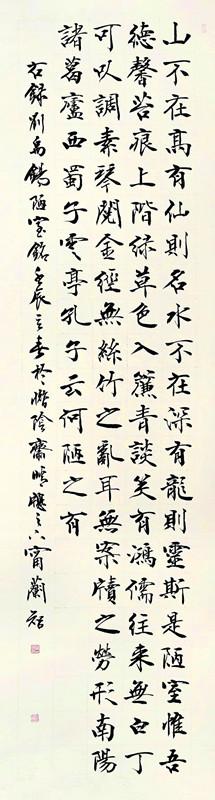 山不在高有仙則名水不在深有龍則靈斯是陋室惟吾
德馨苔痕上階綠草色入簾青談笑有鴻儒往来無白丁
可以調素琴閱金經無絲竹之亂耳無案牘之勞形南陽
諸葛廬西蜀子雲亭孔子云何陋之有
右錄劉禹錫陋室銘壬辰立春於惜陰齋晴窗之下甯蘭